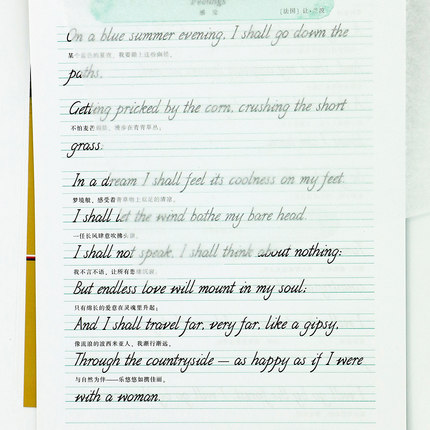 Feelings
感觉
[法国] 让·兰波
On a blue summer evening, I shall go down the
某个蓝色的夏夜，我要踏上这些幽径。
paths.
Getting pricked by the corn, crushing the short
不怕麦芒刺痛，漫步在青青草丛。
grass.
In a dream I shall feel its coolness on my feet.
梦境般，感受着青草吻上双足的清凉。
I shall let the wind bathe my bare head.
一任长风肆意吹拂头颅。
I shall not speak, I shall think about nothing:
我不言不语，让所有思绪沉寂。
But endless love will mount in my soul;
只有绵长的爱意在灵魂里升起；
And I shall travel far, very far, like a gipsy,
像流浪的波西米亚人，我渐行渐远。
Through the countryside – as happy as if I were
与自然为伴——乐悠悠如携佳丽。
with a woman.